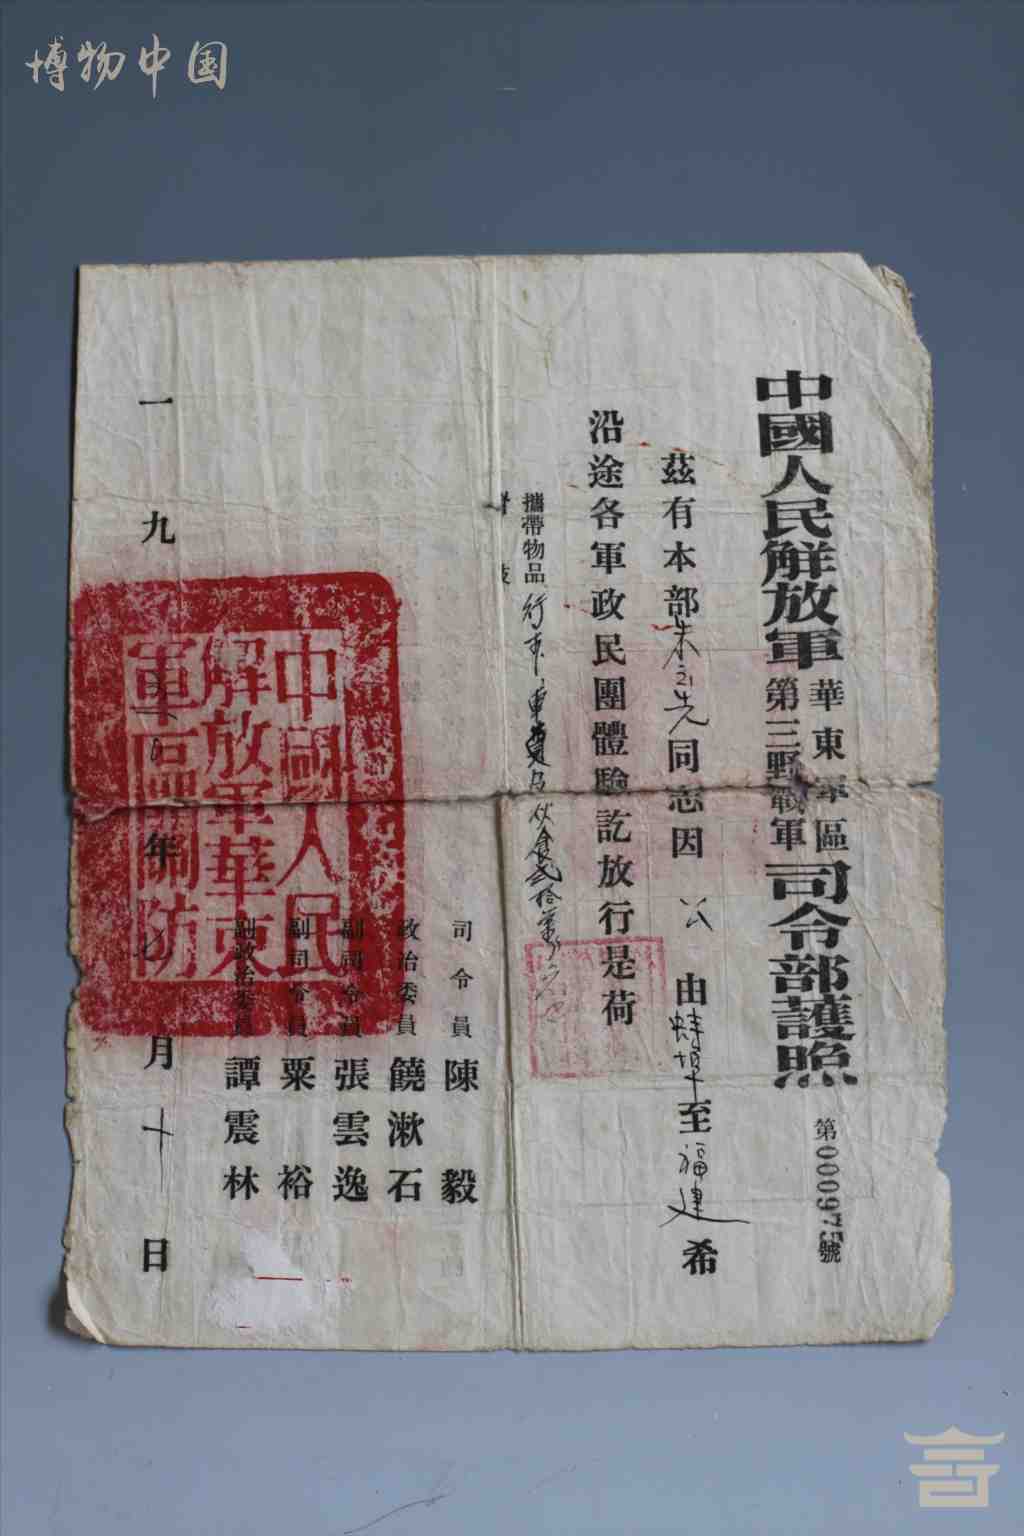 博物中国
中國人民解放軍華東軍區第三野戰軍司令部護照
第000975號
茲有本部朱立先同志因公由蚌埠至福建希
沿途各軍政民團體驗訖放行是荷
攜帶物品 行李
司令員 陳毅
政治委員 饒漱石
副司令員 張雲逸
副司令員 粟裕
副政治委員 譚震林
一九 年 月十日
中國人民
解放軍華東
軍區關防